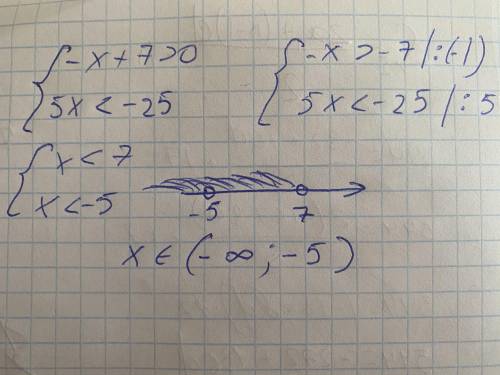 { -x + 7 > 0
5x < -25
{ -x > -7 | : (-1)
5x < -25 | : 5
{ x < 7
x < -5
-5 7
x ∈ (-∞ ; -5)